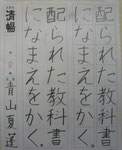 配られた教科書
になまえをかく。
配られた教科書
になまえをかく。
清暢
青山夏蓮